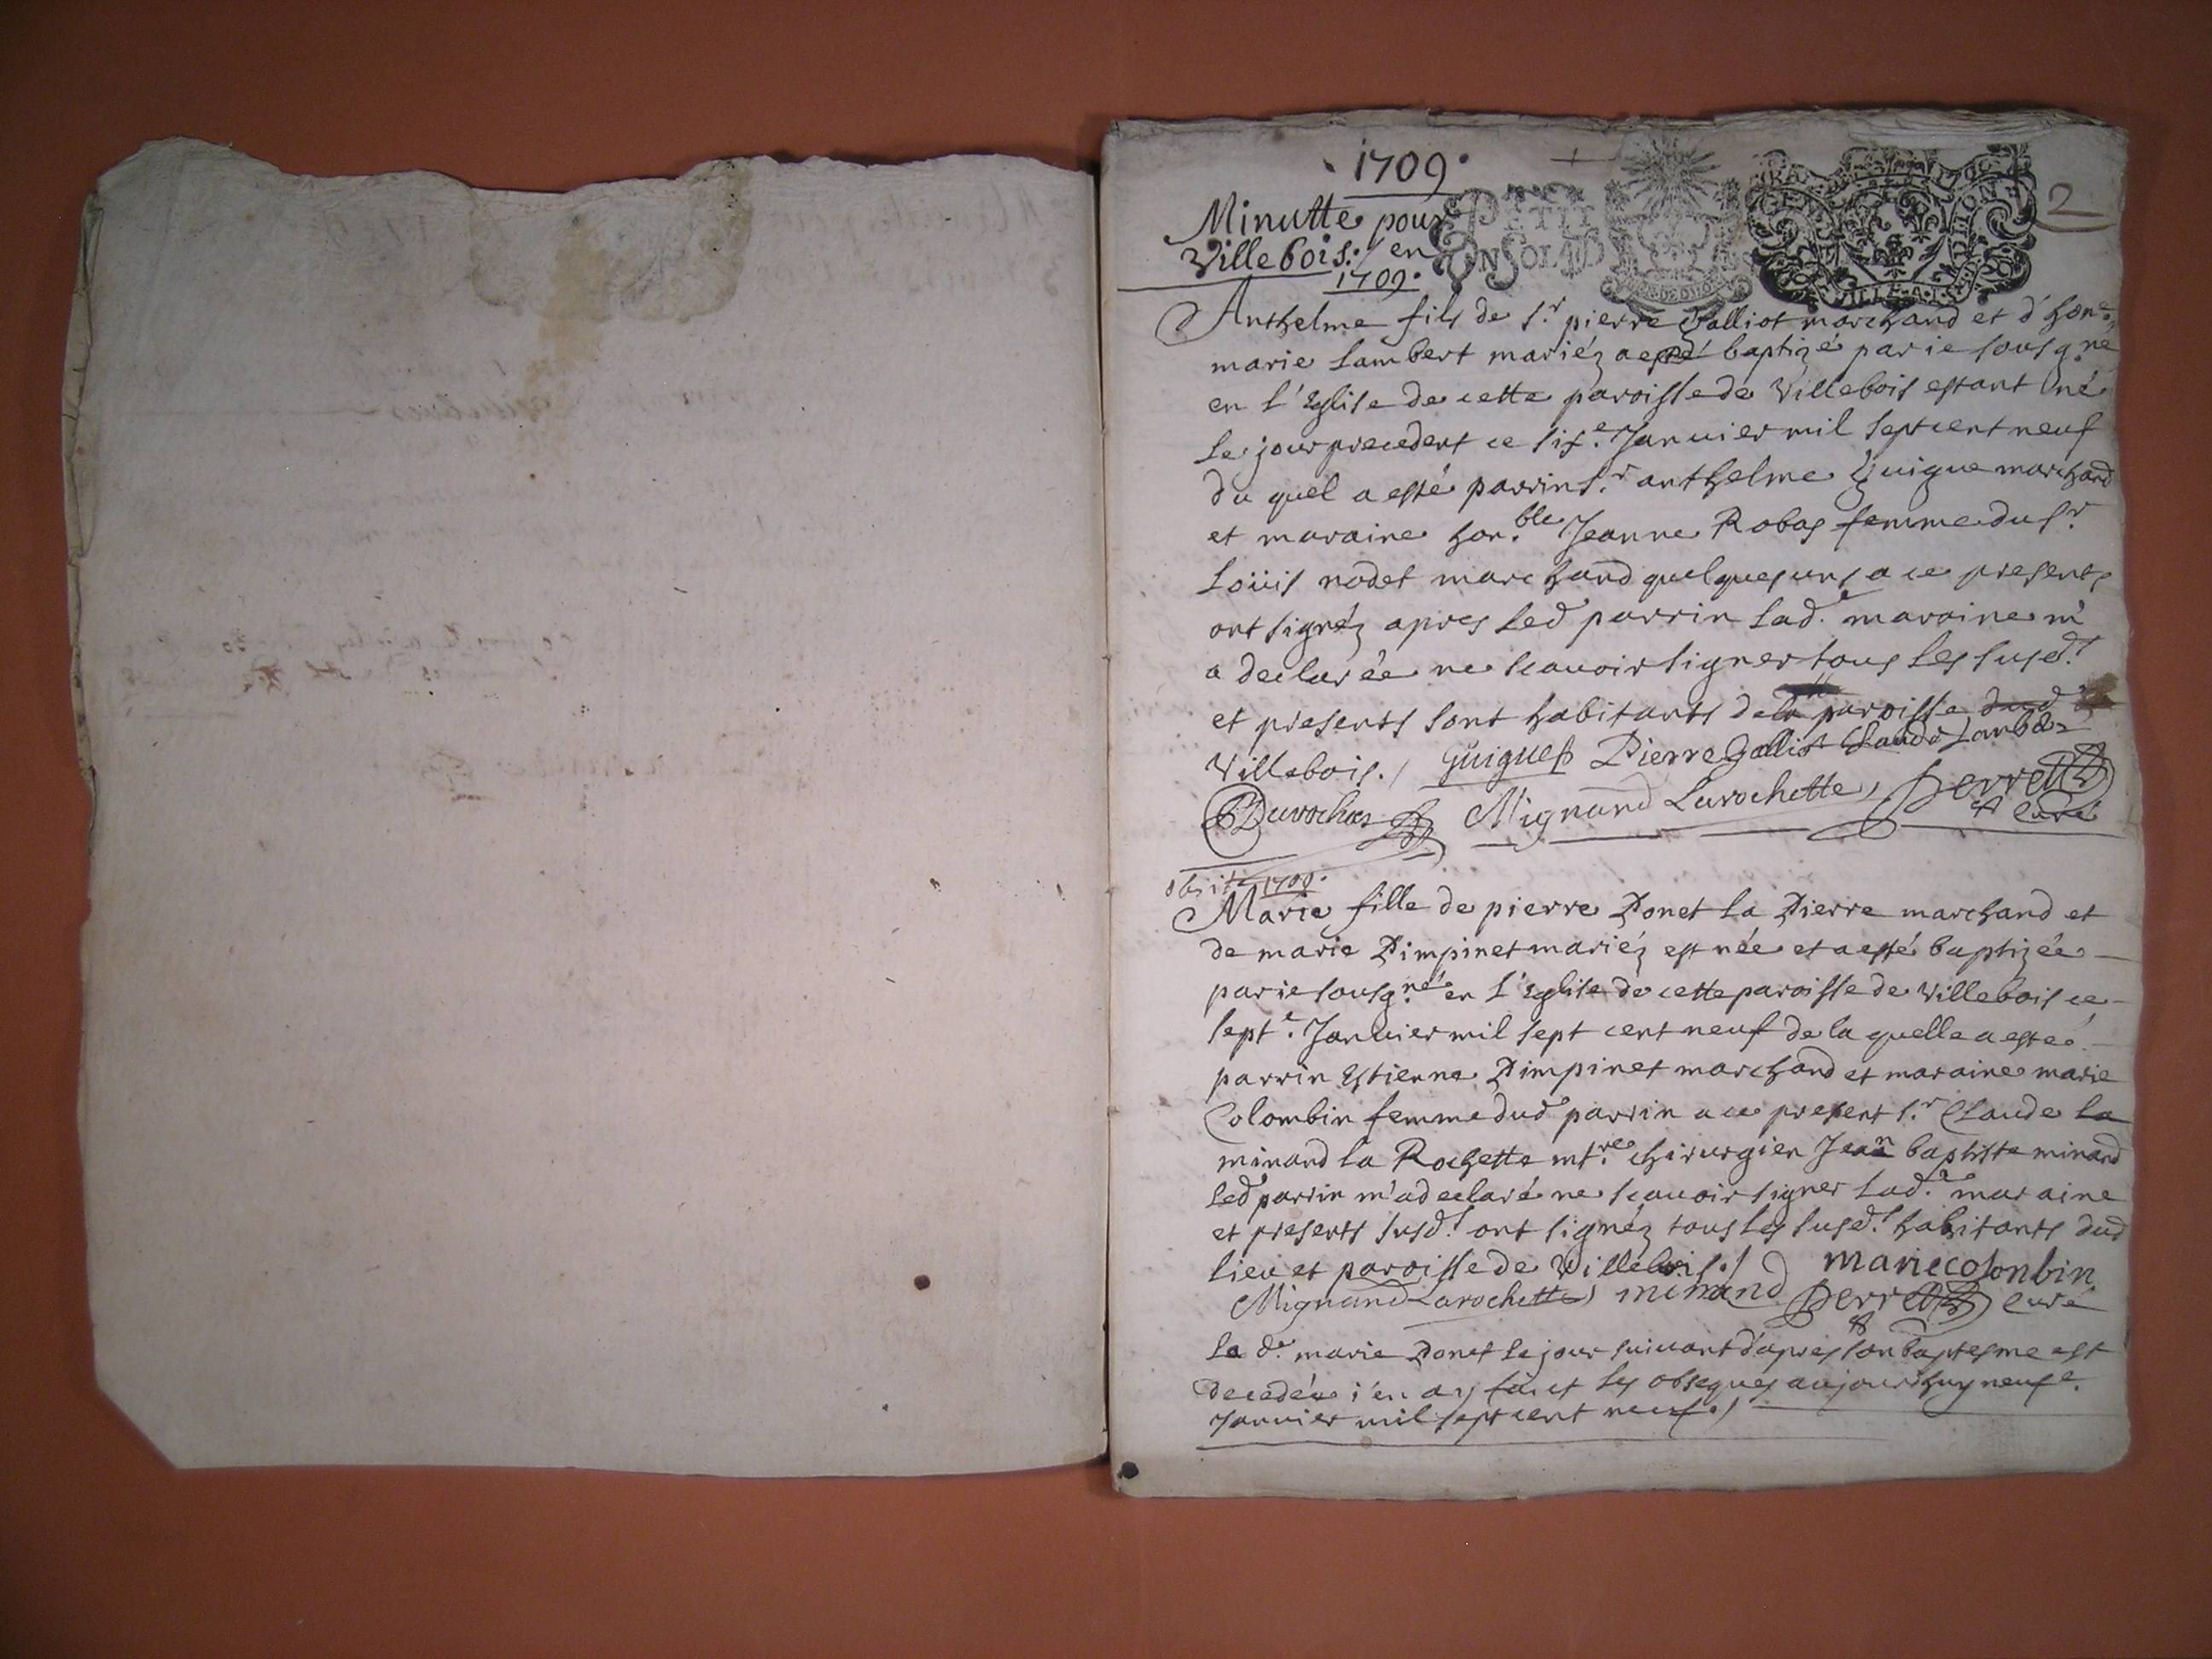 1709.
Minutte pour
Villebois./ en
1709.
PETIT
EN SOL 4 D
2
Anthelme fils de s.r pierre Galliot marchand et d'hon.e
marie Lambert mariéz a esté baptizé par ie sousg.né
en l'Eglise de cette paroisse de Villebois estant né
le jour precedent ce six.e Januier mil sept cent neuf
du quel a esté parrin s.r anthelme Guigue marchand
et maraine hon.ble Jeanne Robas femme du s.r
Loüis nodet marchand quelques uns a ce presents
ont signéz apres led parrin lad.e maraine m'
a declarée ne scauoir signer tous les susd.s
et presents sont habitants dela paroisse dud
Villebois./ Guigues Pierre Galliot Claude Lambert
Durochas Mignand Larochette, Perret curé
obiit 1709.
Marie fille de pierre Ponet la Pierre marchand et
de marie Pimpinet mariéz est née et a esté baptizée
par ie sousg.né en l'Eglise de cette paroisse de Villebois ce
sept.e Januier mil sept cent neuf de la quelle a esté
parrin Estienne Pimpinet marchand et maraine marie
Colombin femme dud parrin a ce present s.r Claude la
minand la Rochette mt.re chirurgien Jean baptiste minand
led parrin m'a declaré ne scauoir signer lad.e maraine
et presents susd.s ont signéz tous les susd.s habitants dud
lieu et paroisse de Villebois./ marie colonbin
Mignand Larochette, minand Perret curé
la d.e marie Ponet le jour suiuant d'apres son baptesme est
decedée i'en ay faict les obseques aujourdhuy neuf.e
Januier mil sept cent neuf./